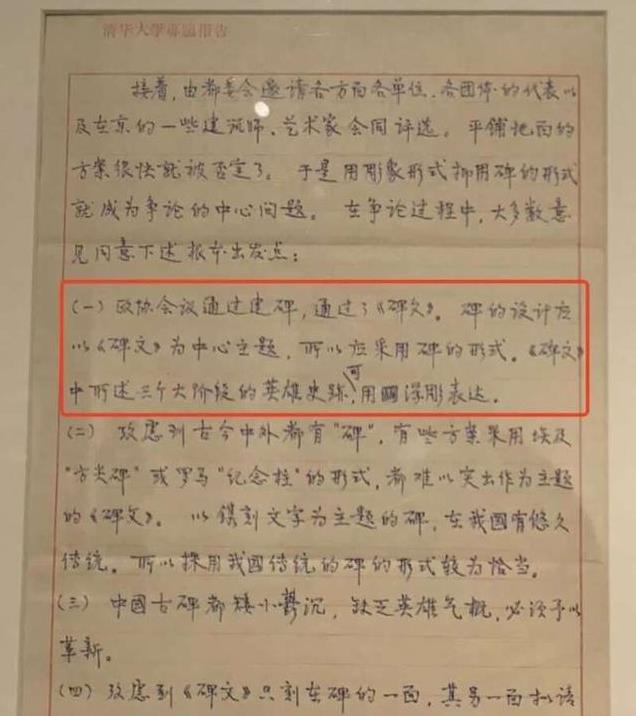 清华大学专题报告
接着,由都委会邀请各方面各单位、各团体的代表以
及在京的一些建筑师、艺术家会同评选。平铺地面的
方案很快就被否定了。于是用彫象形式抑用碑的形式
就成为争论的中心问题。在争论过程中,大多数意
见同意下述报本出发点:
(一)政协会议通过建碑,通过了《碑文》。碑的设计应
以《碑文》为中心主题,所以应采用碑的形式。《碑文》
中所述三个大阶段的英雄史跡,可用浮彫表达。
(二)攷虑到古今中外都有"碑",有些方案采用埃及
"方尖碑"或罗马"纪念柱"的形式,都难以突出作为主题
的《碑文》。以镌刻文字为主题的碑,在我國有悠久
传统。所以採用我國传统的碑的形式较为恰当。
(三)中國古碑都矮小鬱沉,缺乏英雄气概,必须予以
革新。
(四)攷虑到《碑文》只刻在碑的一面,其另一面拟请